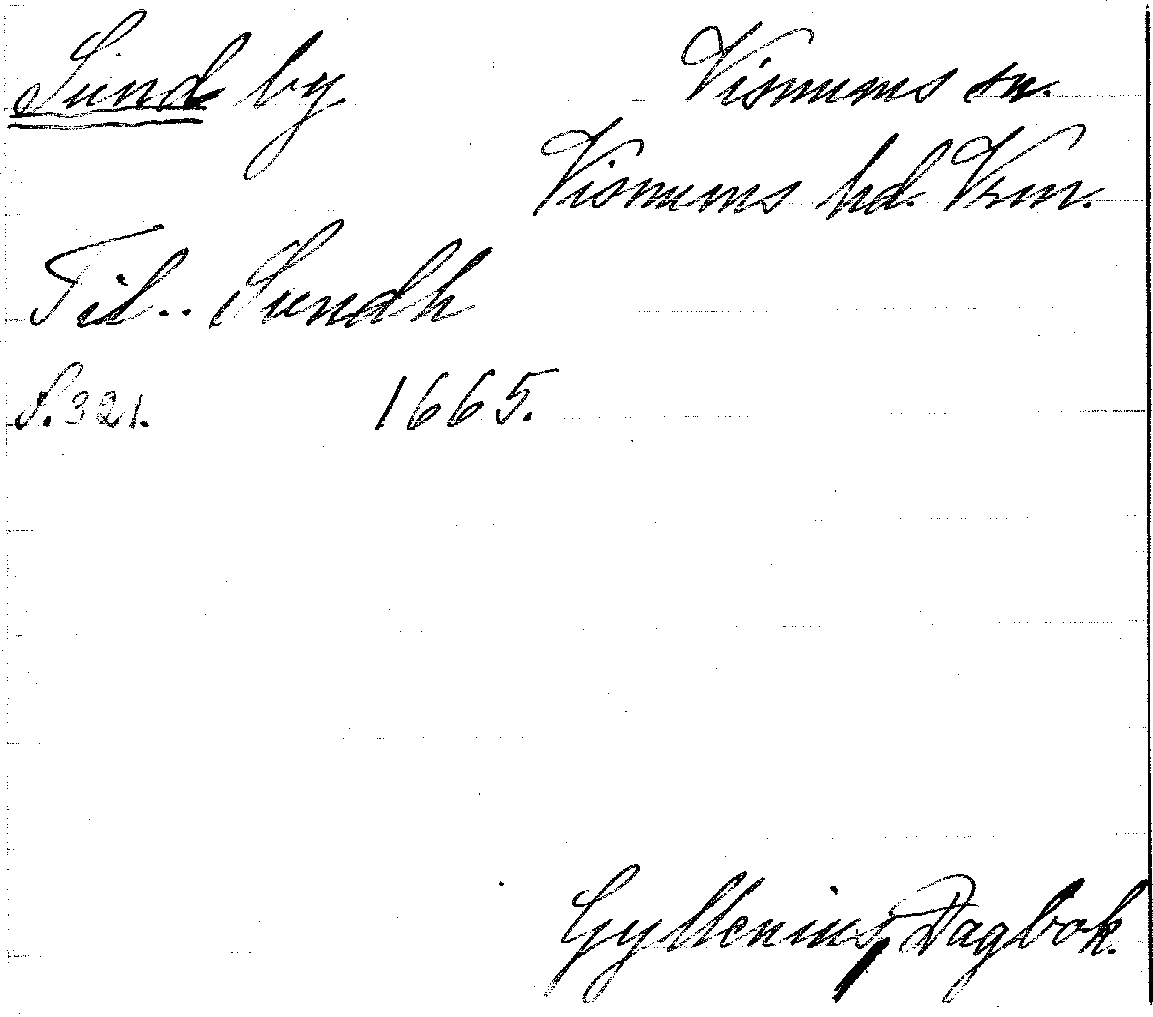 Sund by
Visnums sn.
Visnums hd. Vrm.
Til.. Sundh
S. 321. 1665.
Gyllenius, Dagbok.